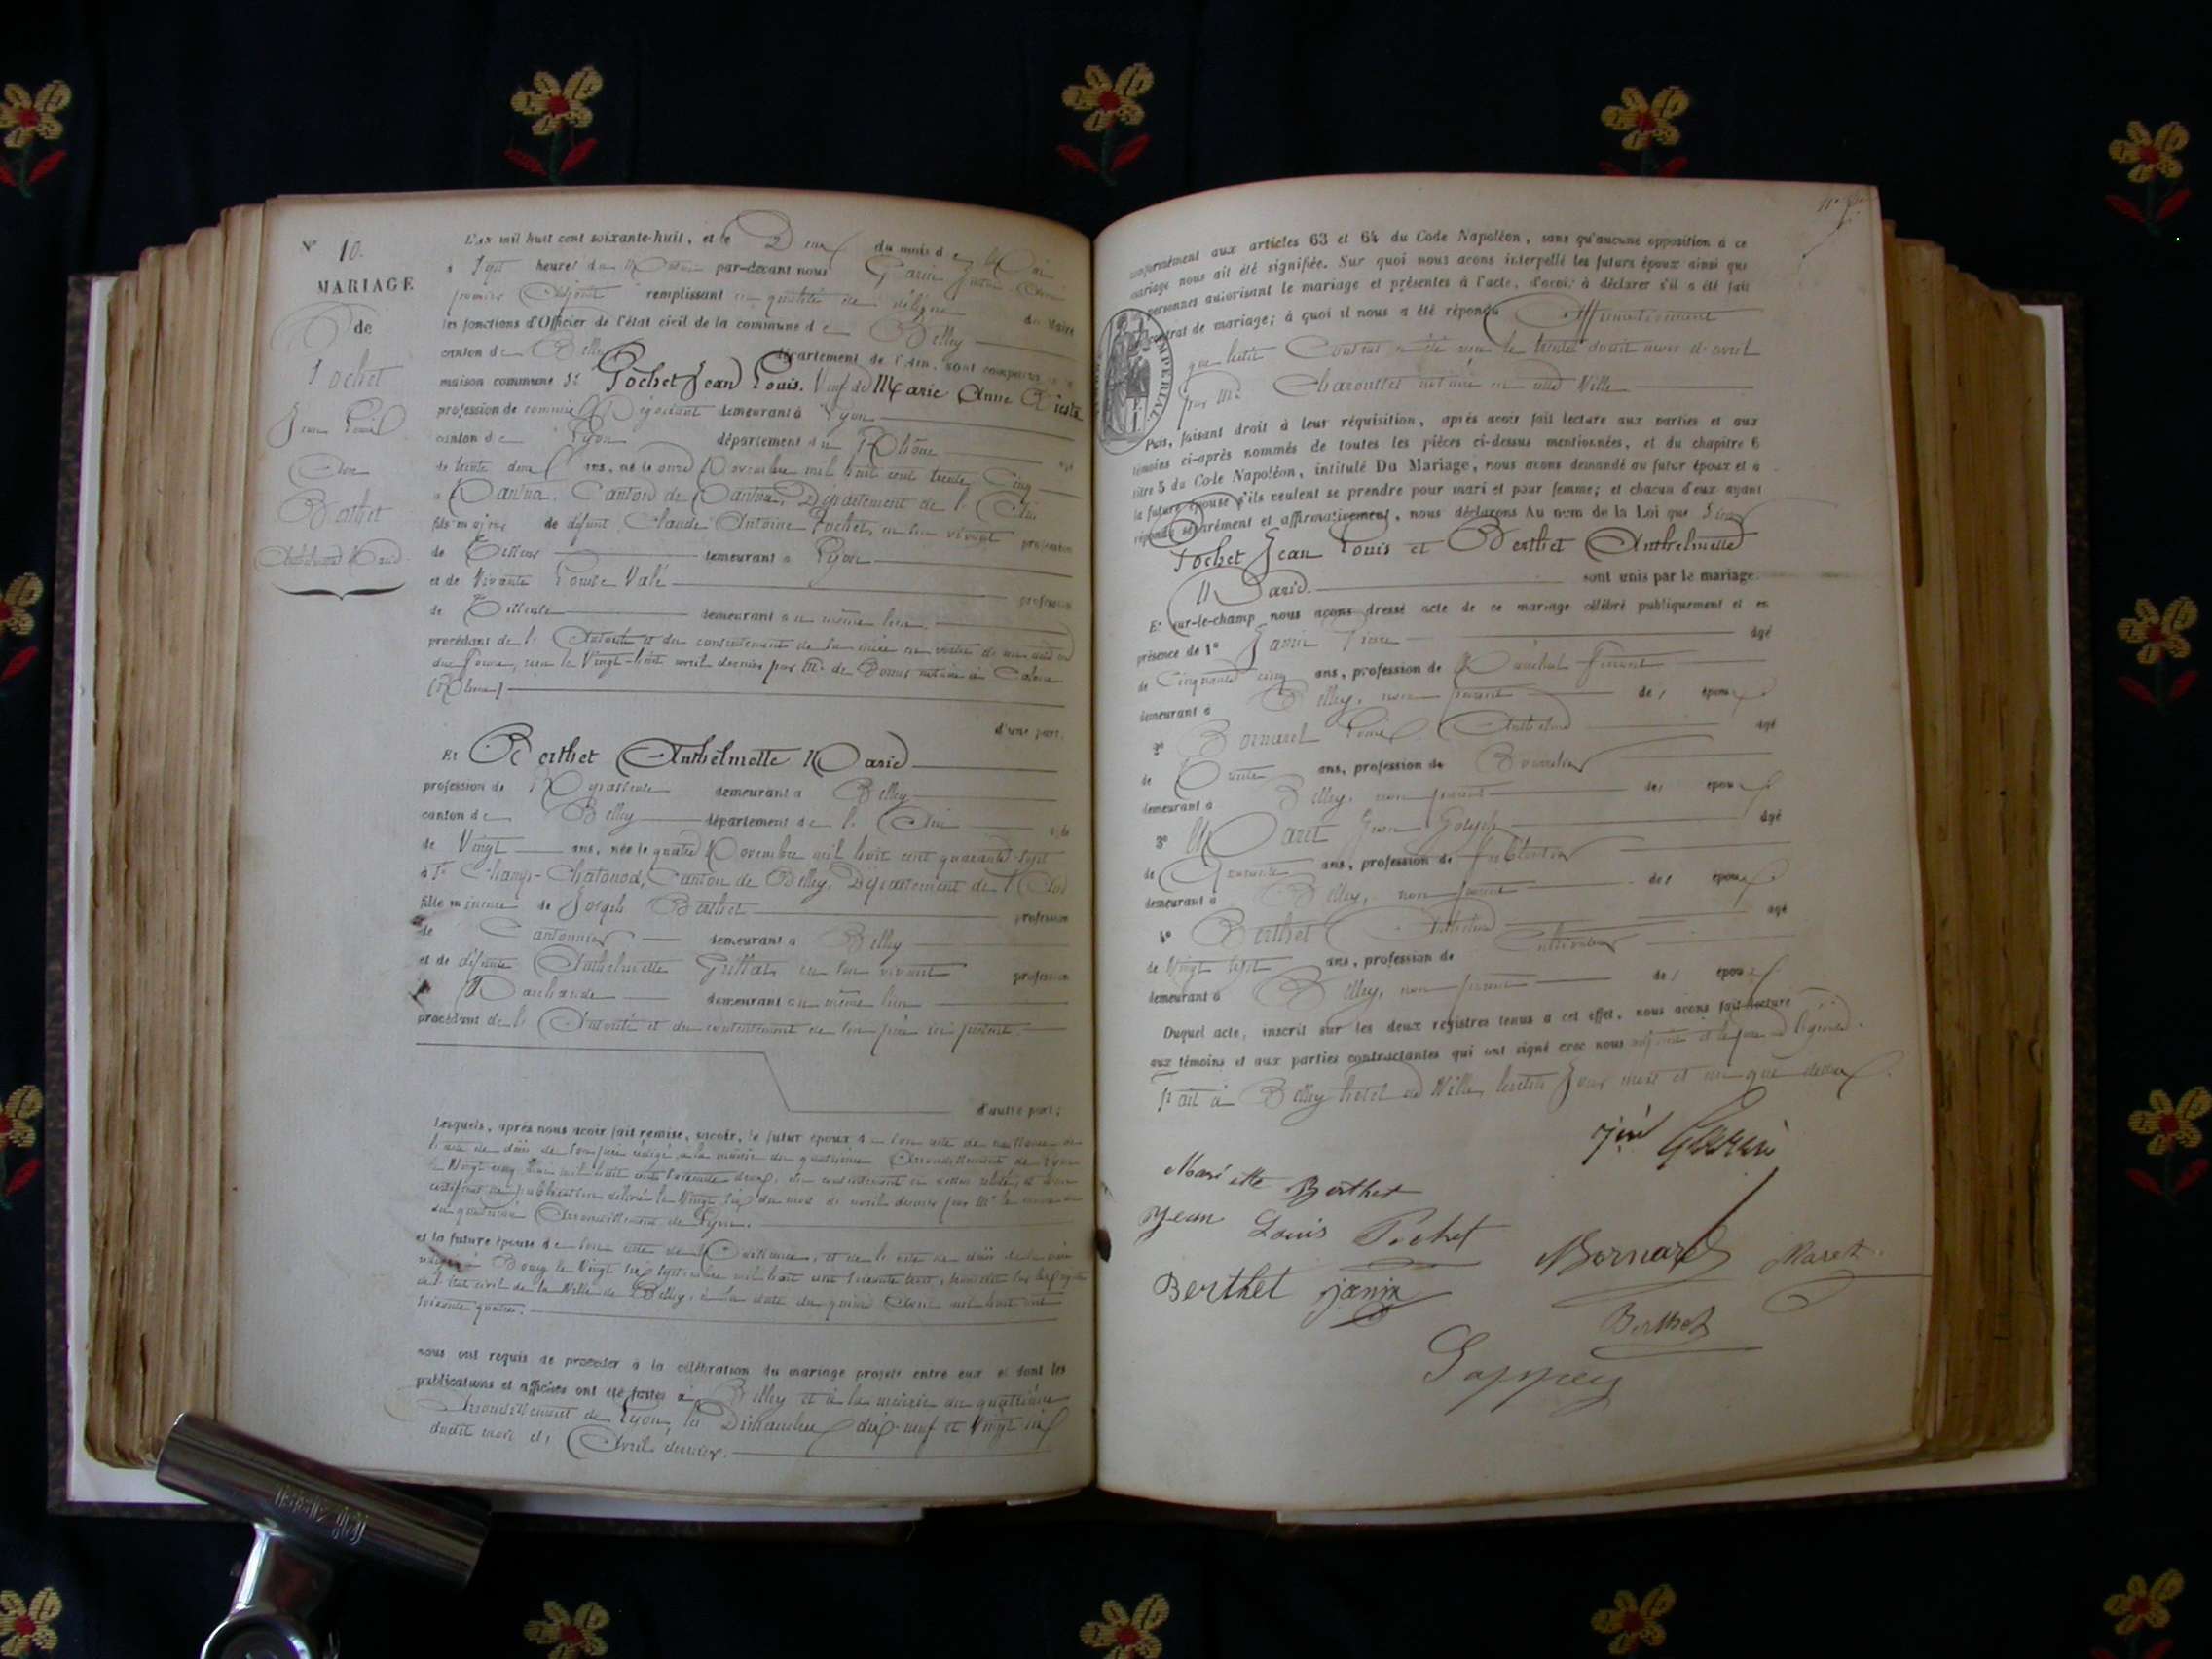 N° 10.
MARIAGE
de
Pochet
Jean Louis
Et
Berthet
Anthelmette Marie
L'an mil huit cent soixante-huit, et le Deux du mois de Mai
à Sept heures du Matin par-devant nous Garin
premier Adjoint remplissant en qualité de délégué du Maire
les fonctions d'Officier de l'état civil de la commune de Belley
canton de Belley département de l'Ain, sont comparus en la
maison commune Sr Pochet Jean Louis. Veuf de Marie Anne
profession de commis Négociant demeurant à Lyon
canton de Lyon département du Rhône âgé
de trente deux ans, né le onze Novembre mil huit cent trente Cinq
à Nantua, Canton de Nantua, Département de l'Ain
fils majeur de défunt Claude Antoine Pochet, en son vivant profession
de Tisseur demeurant à Lyon
et de Vivante Louise Valé profession
de Tisseuse demeurant au même lieu.
procédant de l'Autorité et du consentement de sa mère en vertu de un acte
reçu le Vingt-huit avril dernier par Me de notaire à
(Rhône)
d'une part,
Et Berthet Anthelmette Marie
profession de Repasseuse demeurant à Belley
canton de Belley département de l'Ain âgée
de Vingt ans, née le quatre Novembre mil huit cent quarante-sept
à St Champ-Chatonod, Canton de Belley, Département de l'Ain
fille mineure de Joseph Berthet profession
de Cantonnier demeurant à Belley
et de défunte Anthelmette Grillat en son vivant profession
de Marchande demeurant au même lieu
procédant de l'Autorité et du consentement de son père ici présent.
d'autre part;
Lesquels, après nous avoir fait remise, savoir, le futur époux de son acte de naissance de
l'acte de décès de son père rédigé à la mairie du quatrième Arrondissement de Lyon
le Vingt cinq mil huit cent soixante deux, du consentement ci-dessus relaté, et d'un
certificat de publication délivré le Vingt six du mois de avril dernier par Mr le maire
du quatrième Arrondissement de Lyon.
et la future épouse de son acte de Naissance, et de l'acte de décès de sa mère
rédigé à Bourg le Vingt six Septembre mil huit cent soixante trois, transcrit sur les registres
de l'état civil de la Ville de Belley, à la date du quinze Avril mil huit cent
soixante quatre.
nous ont requis de procéder à la célébration du mariage projeté entre eux et dont les
publications et affiches ont été faites à Belley et à la mairie du quatrième
Arrondissement de Lyon, les Dimanches dix-neuf et Vingt six
dudit mois d'Avril dernier.
conformément aux articles 63 et 64 du Code Napoléon, sans qu'aucune opposition à ce
mariage nous ait été signifiée. Sur quoi nous avons interpellé les futurs époux ainsi que
personnes autorisant le mariage et présentes à l'acte, d'avoir à déclarer s'il a été fait
contrat de mariage; à quoi il nous a été répondu Affirmativement
que ledit Contrat a été reçu le trente dudit mois d'avril
par Me Charcuttet notaire en cette Ville
IMPERIAL
Puis, faisant droit à leur réquisition, après avoir fait lecture aux parties et aux
témoins ci-après nommés de toutes les pièces ci-dessus mentionnées, et du chapitre 6
titre 5 du Code Napoléon, intitulé Du Mariage, nous avons demandé au futur époux et à
la future épouse s'ils veulent se prendre pour mari et pour femme; et chacun d'eux ayant
répondu séparément et affirmativement, nous déclarons Au nom de la Loi que
Pochet Jean Louis et Berthet Anthelmette
Marie. sont unis par le mariage.
Et sur-le-champ nous avons dressé acte de ce mariage célébré publiquement et en
présence de 1° Janin Pierre âgé
de Cinquante cinq ans, profession de Maréchal ferrant
demeurant à Belley, non parent des époux
2° Bornarel Louis Anthelme âgé
de Trente ans, profession de Bourrelier
demeurant à Belley, non parent des époux
3° Maret Jean Joseph âgé
de Quarante ans, profession de ferblantier
demeurant à Belley, non parent des époux
4° Berthet Anthelme âgé
de Vingt sept ans, profession de Cultivateur
demeurant à Belley, non parent des époux
Duquel acte, inscrit sur les deux registres tenus à cet effet, nous avons fait lecture
aux témoins et aux parties contractantes qui ont signé avec nous adjoint et le père de l'épouse.
Fait à Belley hotel de Ville, lesdits Jour mois et an que dessus.
Garin
Mariette Berthet
Jean Louis Pochet
Bornarel Maret
Berthet janin
Berthet
Sappey